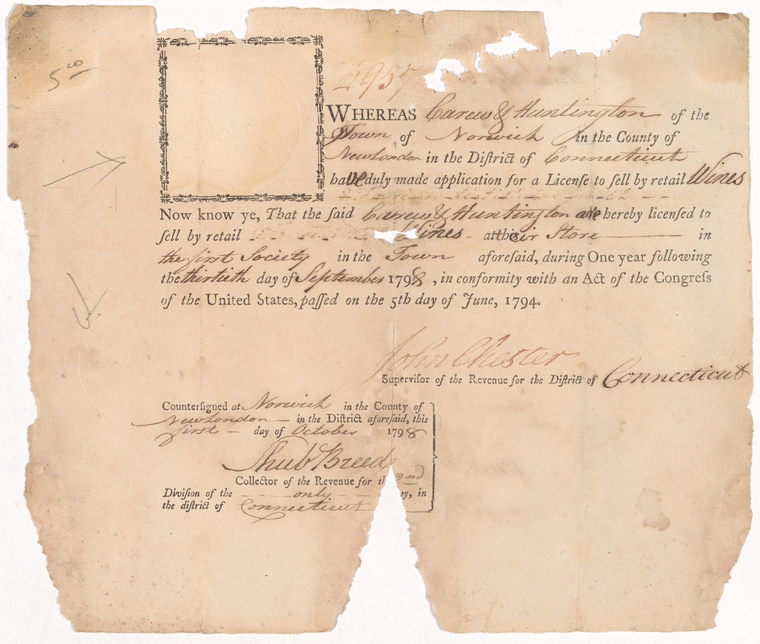 5 00
957
WHEREAS Carew & Huntington of the
Town of Norwich in the County of
Newlondon in the District of Connecticut
have duly made application for a License to sell by retail Wines
Now know ye, That the said Carew & Huntington are hereby licensed to
sell by retail Wines at their Store in
the first Society in the Town aforesaid, during One year following
the thirtieth day of September 1798, in conformity with an Act of the Congress
of the United States, passed on the 5th day of June, 1794.
John Chester
Supervisor of the Revenue for the District of Connecticut
Countersigned at Norwich in the County of
Newlondon in the District aforesaid, this
first day of October 1798
Shub Breed
Collector of the Revenue for the 2nd
Division of the only in
the district of Connecticut